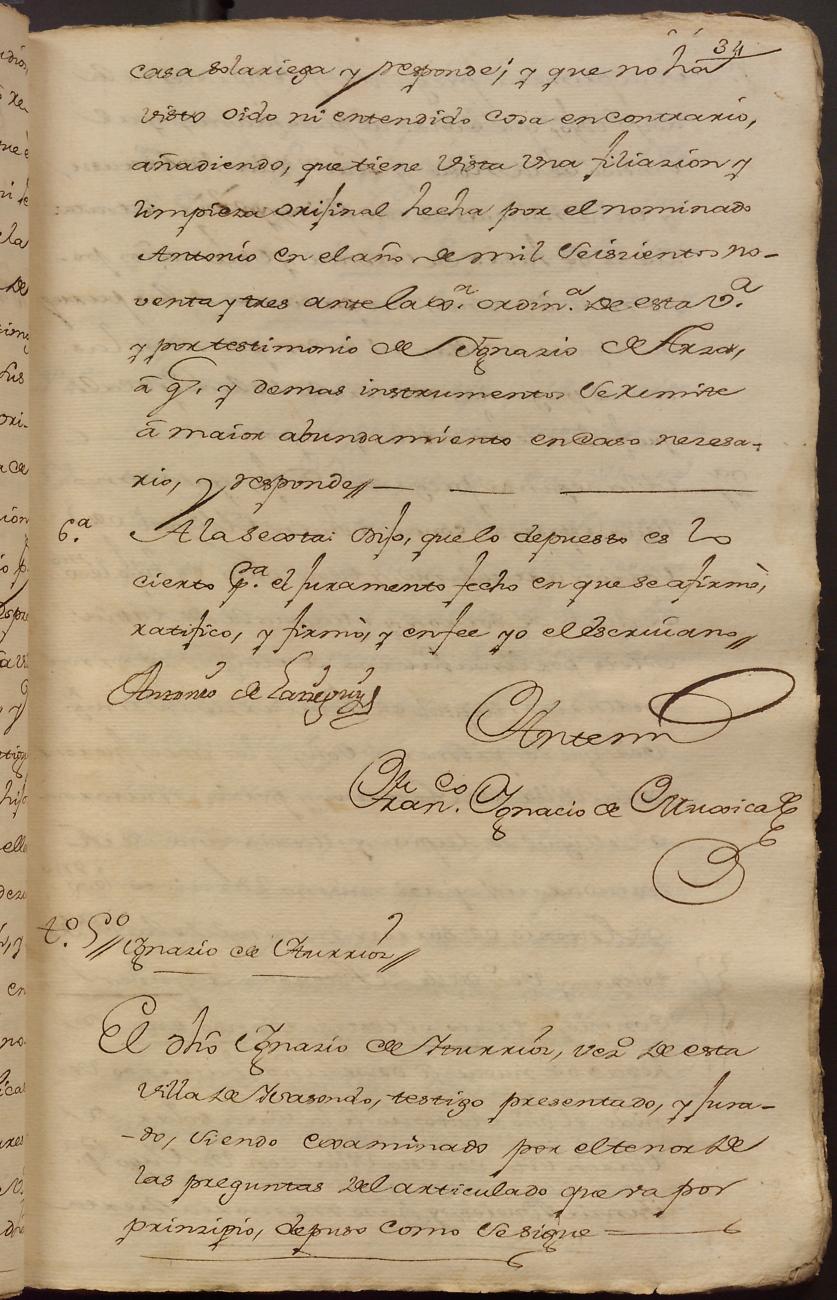 34
casa solariega y responde; y que no há
visto oido ni entendido cosa en contrario,
añadiendo, que tiene vista una filiazion y
limpieza orijinal hecha por el nominado
Antonio en el año de mil seiszientos no-
venta y tres ante la Jª. ordinª. de esta Vª.
y por testimonio de Ygnazio de Arza,
â q. y demas instrumentos se remite
â maior abundamiento en caso nezesa-
rio, y responde//
6ª. A la sexta: Dijo, que lo depuesto es lo
cierto pª. el juramento fecho en que se afirmò,
ratifico, y firmò, y en fee yo el Escrivano//
Antonio de
Antemi
Franco. Ygnacio de Muxica
to. 5o// Ygnazio de Yturrioz//
El dho Ygnazio de Yturrioz, vezo de esta
Villa de , testigo presentado, y jura-
-do, siendo examinado por el tenor de
las preguntas del articulado que va por
prinzipio, depuso como se sigue